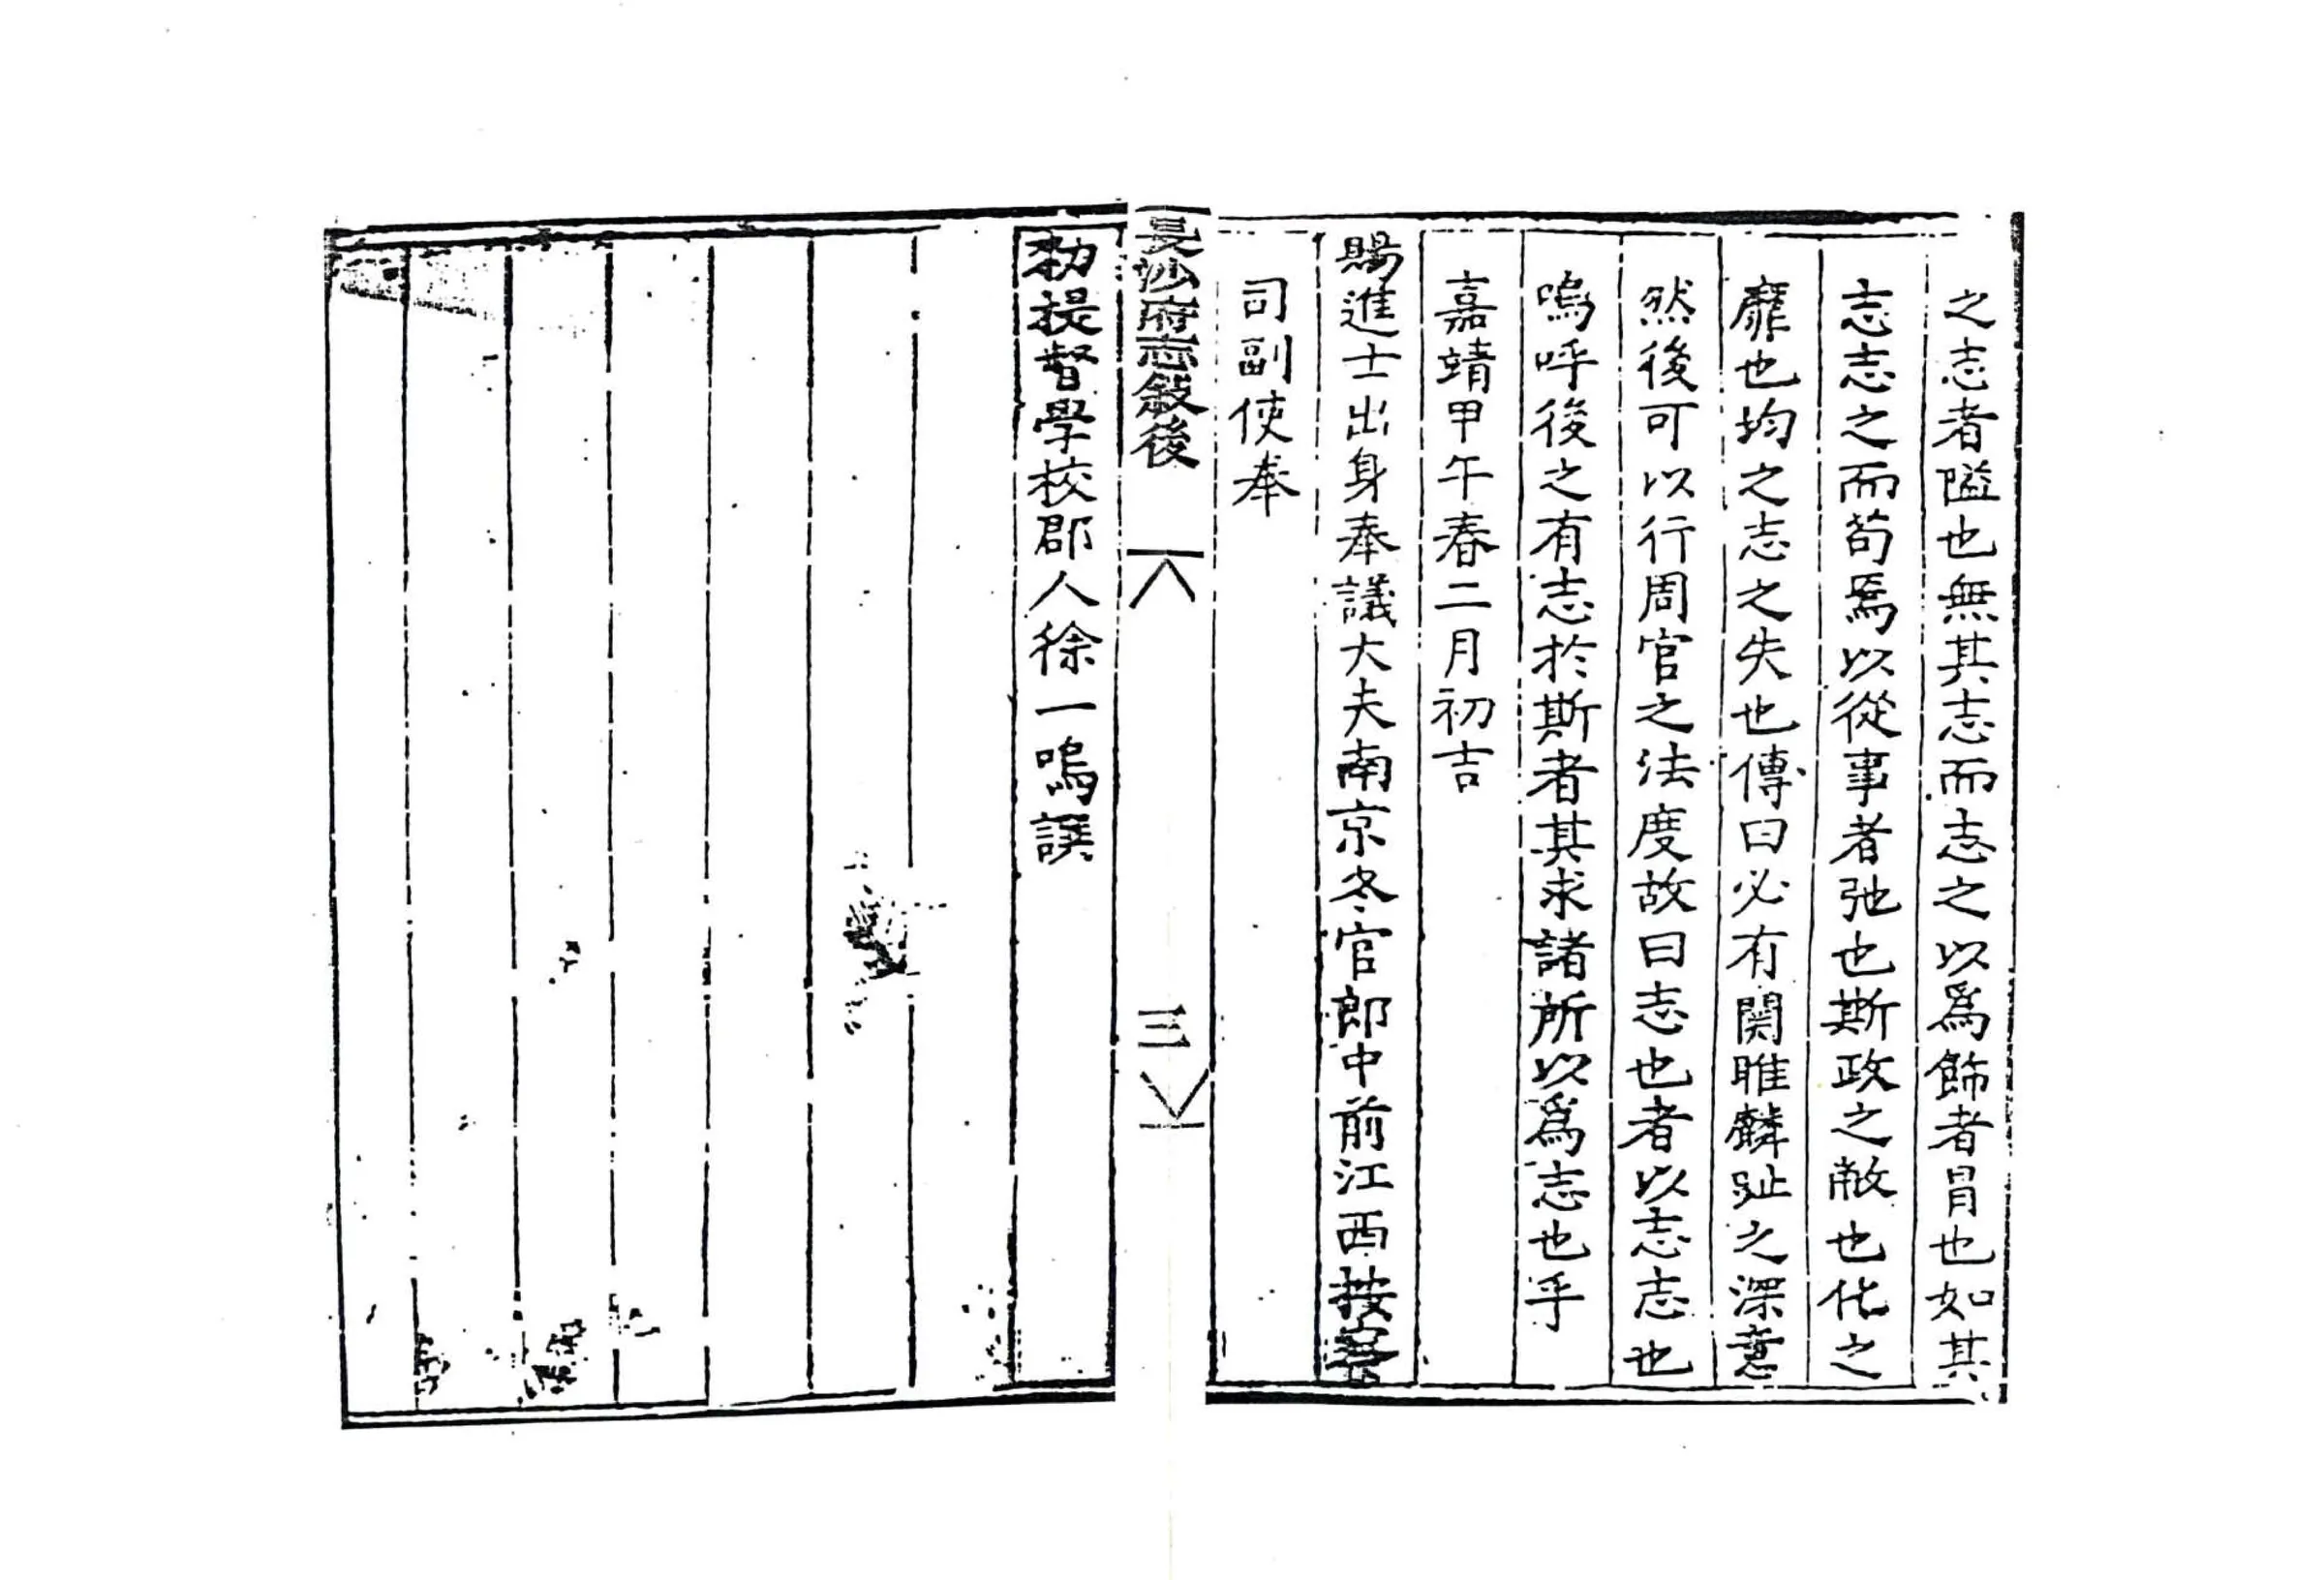 之志者隘也無其志而志之以爲飾者冒也如其
志志之而苟焉以從事者弛也斯政之敝也化之
靡也均之志之失也傳曰必有関雎麟趾之深意
然後可以行周官之法度故曰志也者以志志也
嗚呼後之有志於斯者其求諸所以爲志也乎
嘉靖甲午春二月初吉
賜進士出身奉議大夫南京冬官郎中前江西按察
司副使奉
長沙府志敘後 三
勑提督學校郡人徐一鳴譔